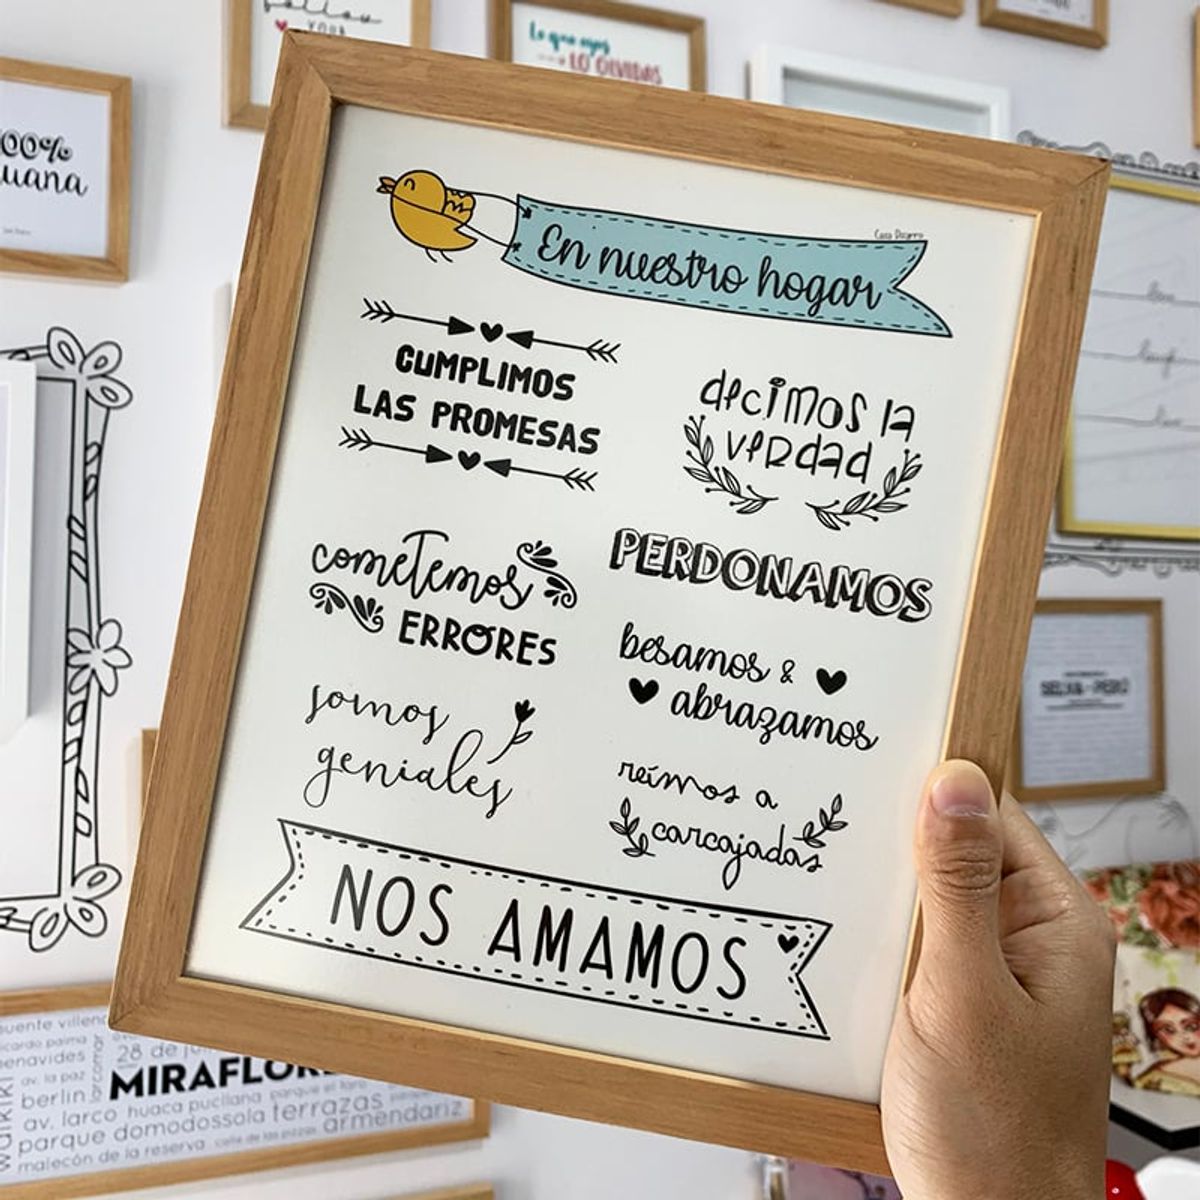 follow
YOUR
Lo que ojos
LO OLVIDAS
00%
uana
En nuestro hogar
CUMPLIMOS
LAS PROMESAS
decimos la
verdad
cometemos
ERRORES
PERDONAMOS
besamos &
abrazamos
somos
geniales
reímos a
carcajadas
NOS AMAMOS
SELVA - PERÚ
uente villen
icardo palma
enavides
28 de ju
av. la paz
berlin
larcomar
MIRAFLOR
av. larco huaca pucllana parque el faro
parque domodossola terrazas
armendariz
malecón de la reserva calle de las pizzas
waikiki